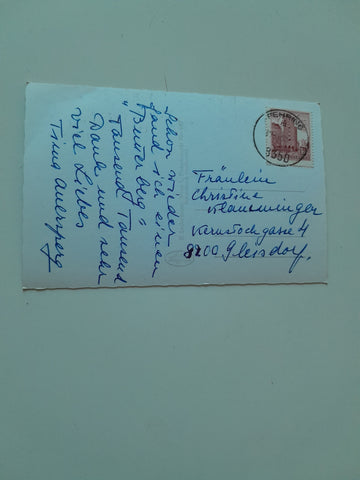 Schon wieder
fand ich einen
"Butterberg"
Tausend Tausend
Dank und sehr
viel Liebes
Tina Auersperg
FEHRING
8350
Fräulein
Christine
Klauminger
Kernstockgasse 4
8200 Gleisdorf.